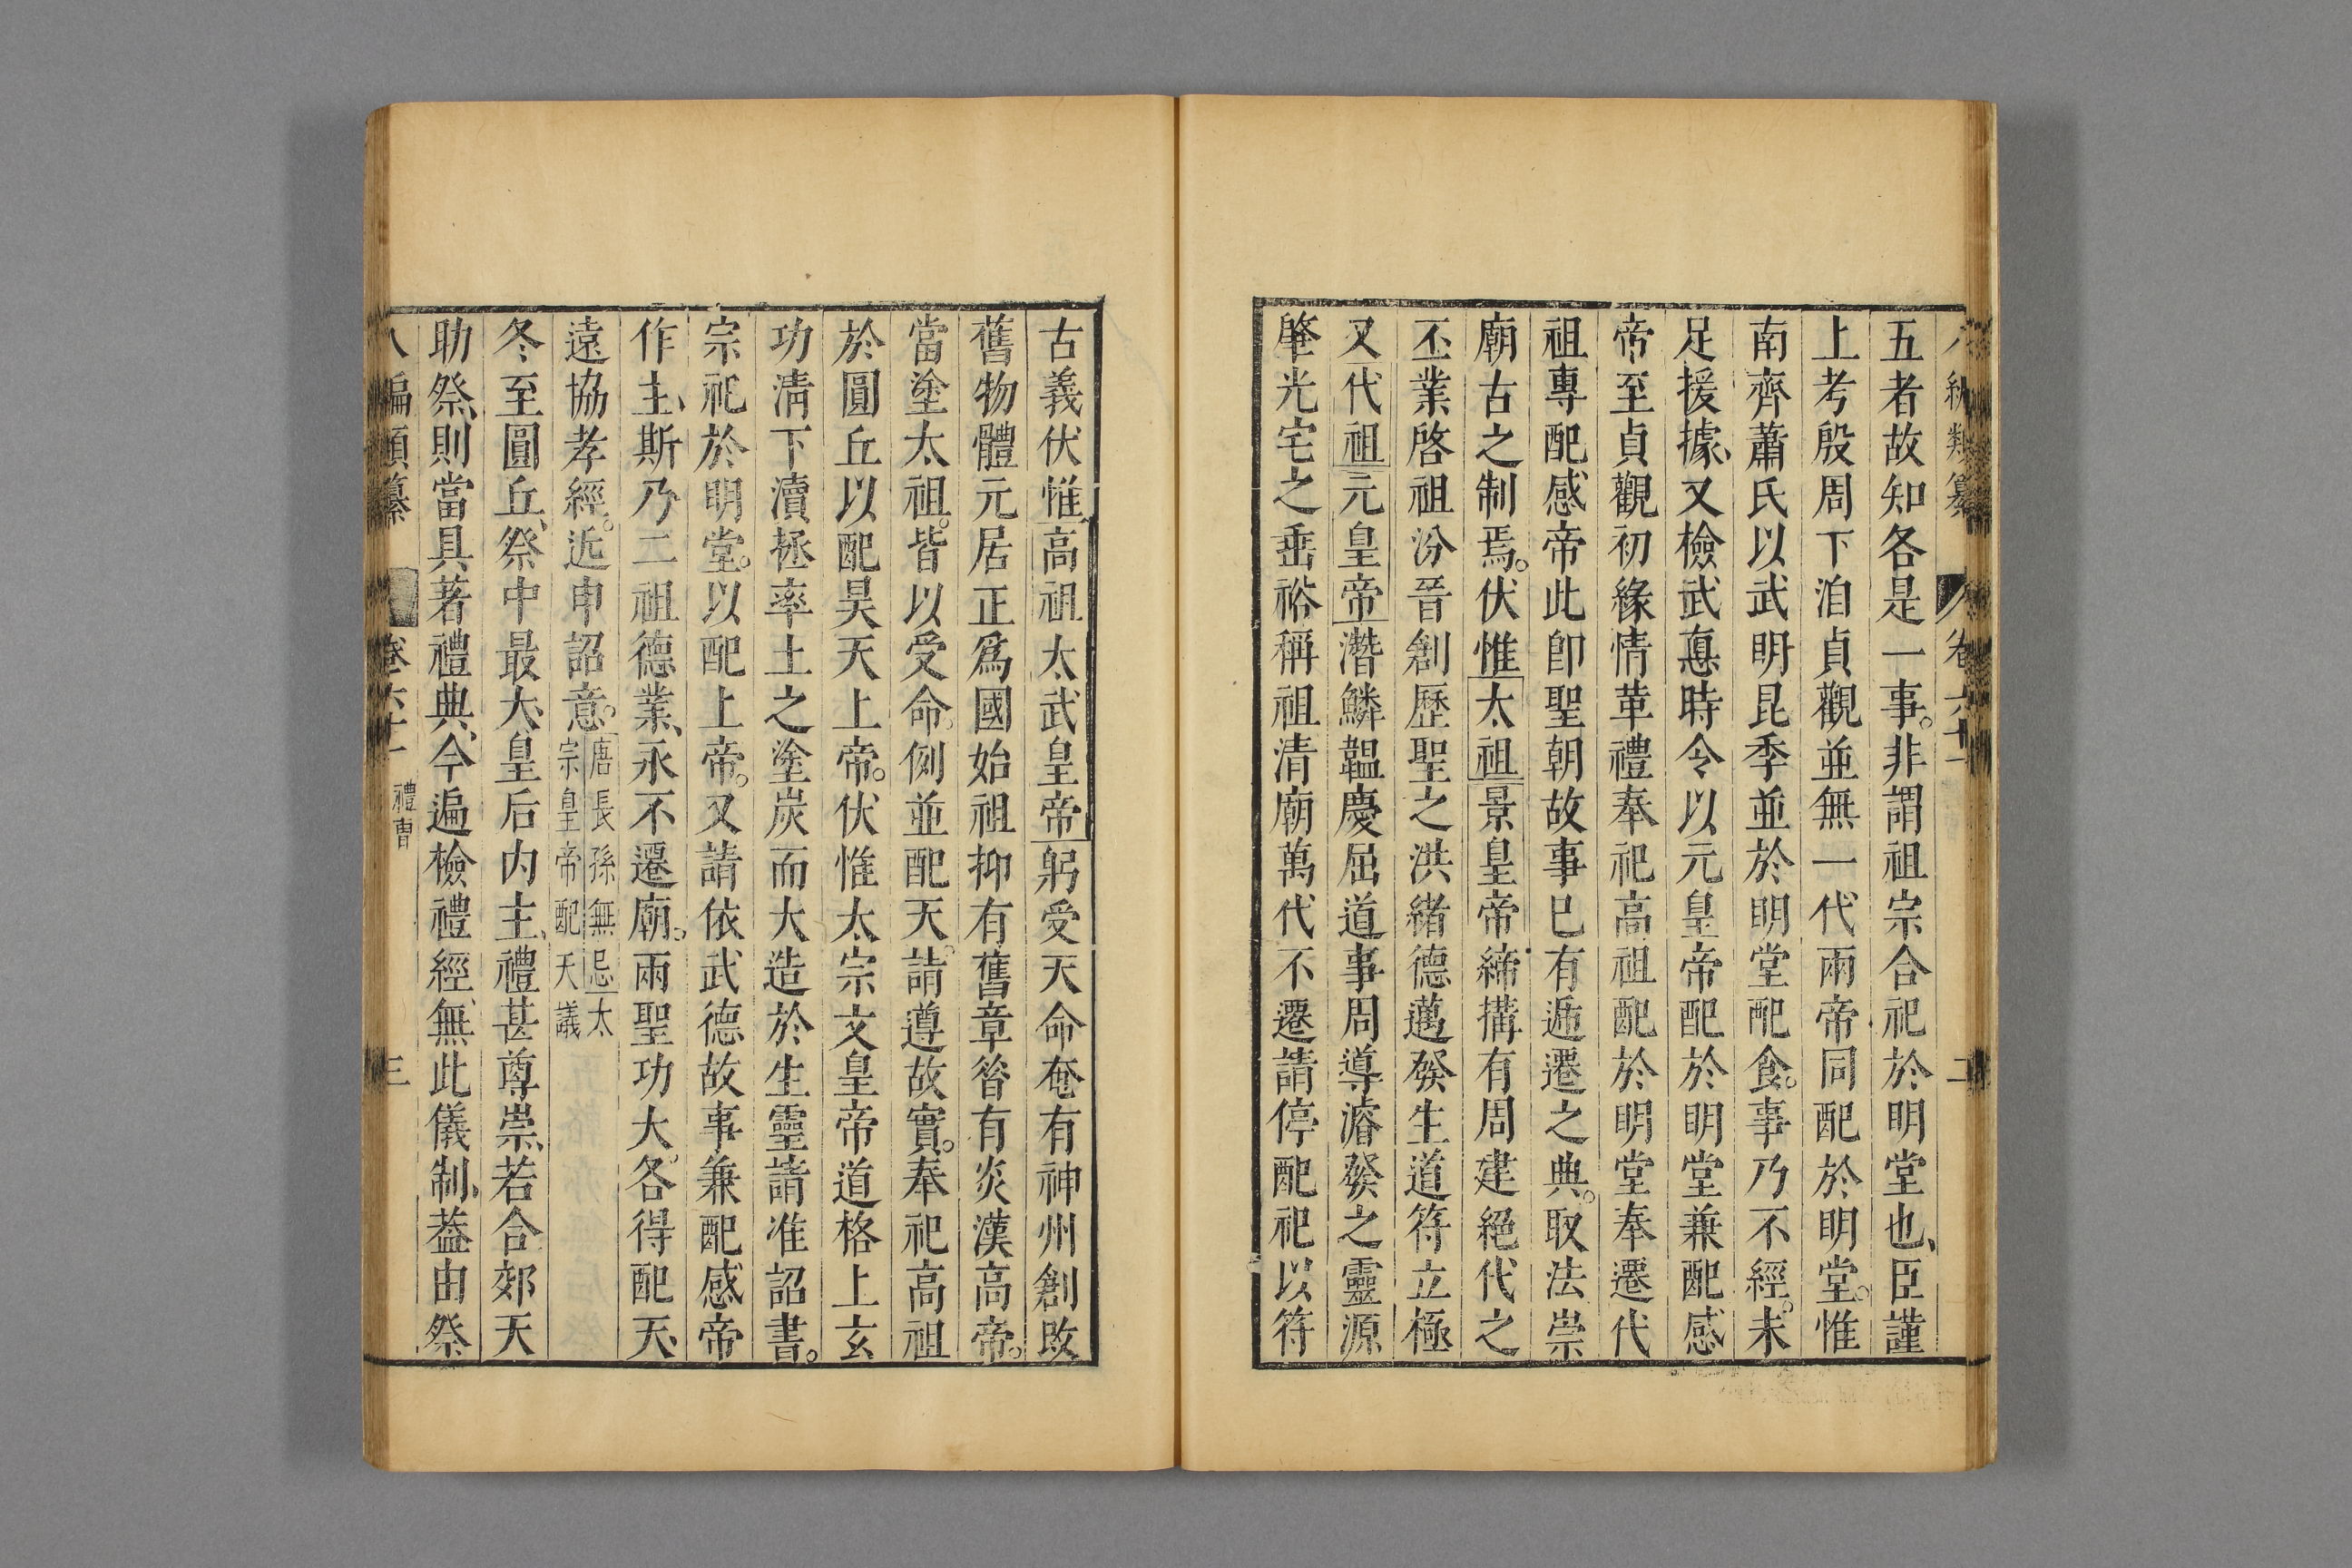 八編類纂 卷六十一 二
五者故知各是一事。非謂祖宗合祀於明堂也、臣謹
上考殷周下洎貞觀並無一代兩帝同配於明堂。惟
南齊蕭氏以武明昆季並於明堂配食。事乃不經。未
足援據、又檢武悳時令以元皇帝配於明堂兼配感
帝至貞觀初緣情革禮奉祀高祖配於明堂奉遷代
祖專配感帝此卽聖朝故事已有遞遷之典。取法崇
廟古之制焉。伏惟太祖景皇帝締搆有周建絕代之
丕業啓祖汾晉創歷聖之洪緒德邁發生道符立極
又代祖元皇帝潛鱗韞慶屈道事周導濬發之靈源
肇光宅之垂裕稱祖清廟萬代不遷請停配祀以符
古義伏惟高祖太武皇帝躬受天命奄有神州創改
舊物體元居正爲國始祖抑有舊章昝有炎漢高帝。
當塗太祖。皆以受命。例並配天。請遵故實。奉祀高祖
於圓丘以配昊天上帝。伏惟太宗文皇帝道格上玄
功清下瀆拯率土之塗炭而大造於生靈請准詔書。
宗祀於明堂。以配上帝。又請依武德故事兼配感帝
作主、斯乃二祖德業、永不遷廟。兩聖功大。各得配天、
遠協孝經。近申詔意。唐長孫無忌太
宗皇帝配天議
冬至圓丘、祭中最大、皇后内主、禮甚尊崇、若合郊天
助祭、則當具著禮典、今遍檢禮經無此儀制、葢由祭
八編類纂 卷六十一 禮曹 三